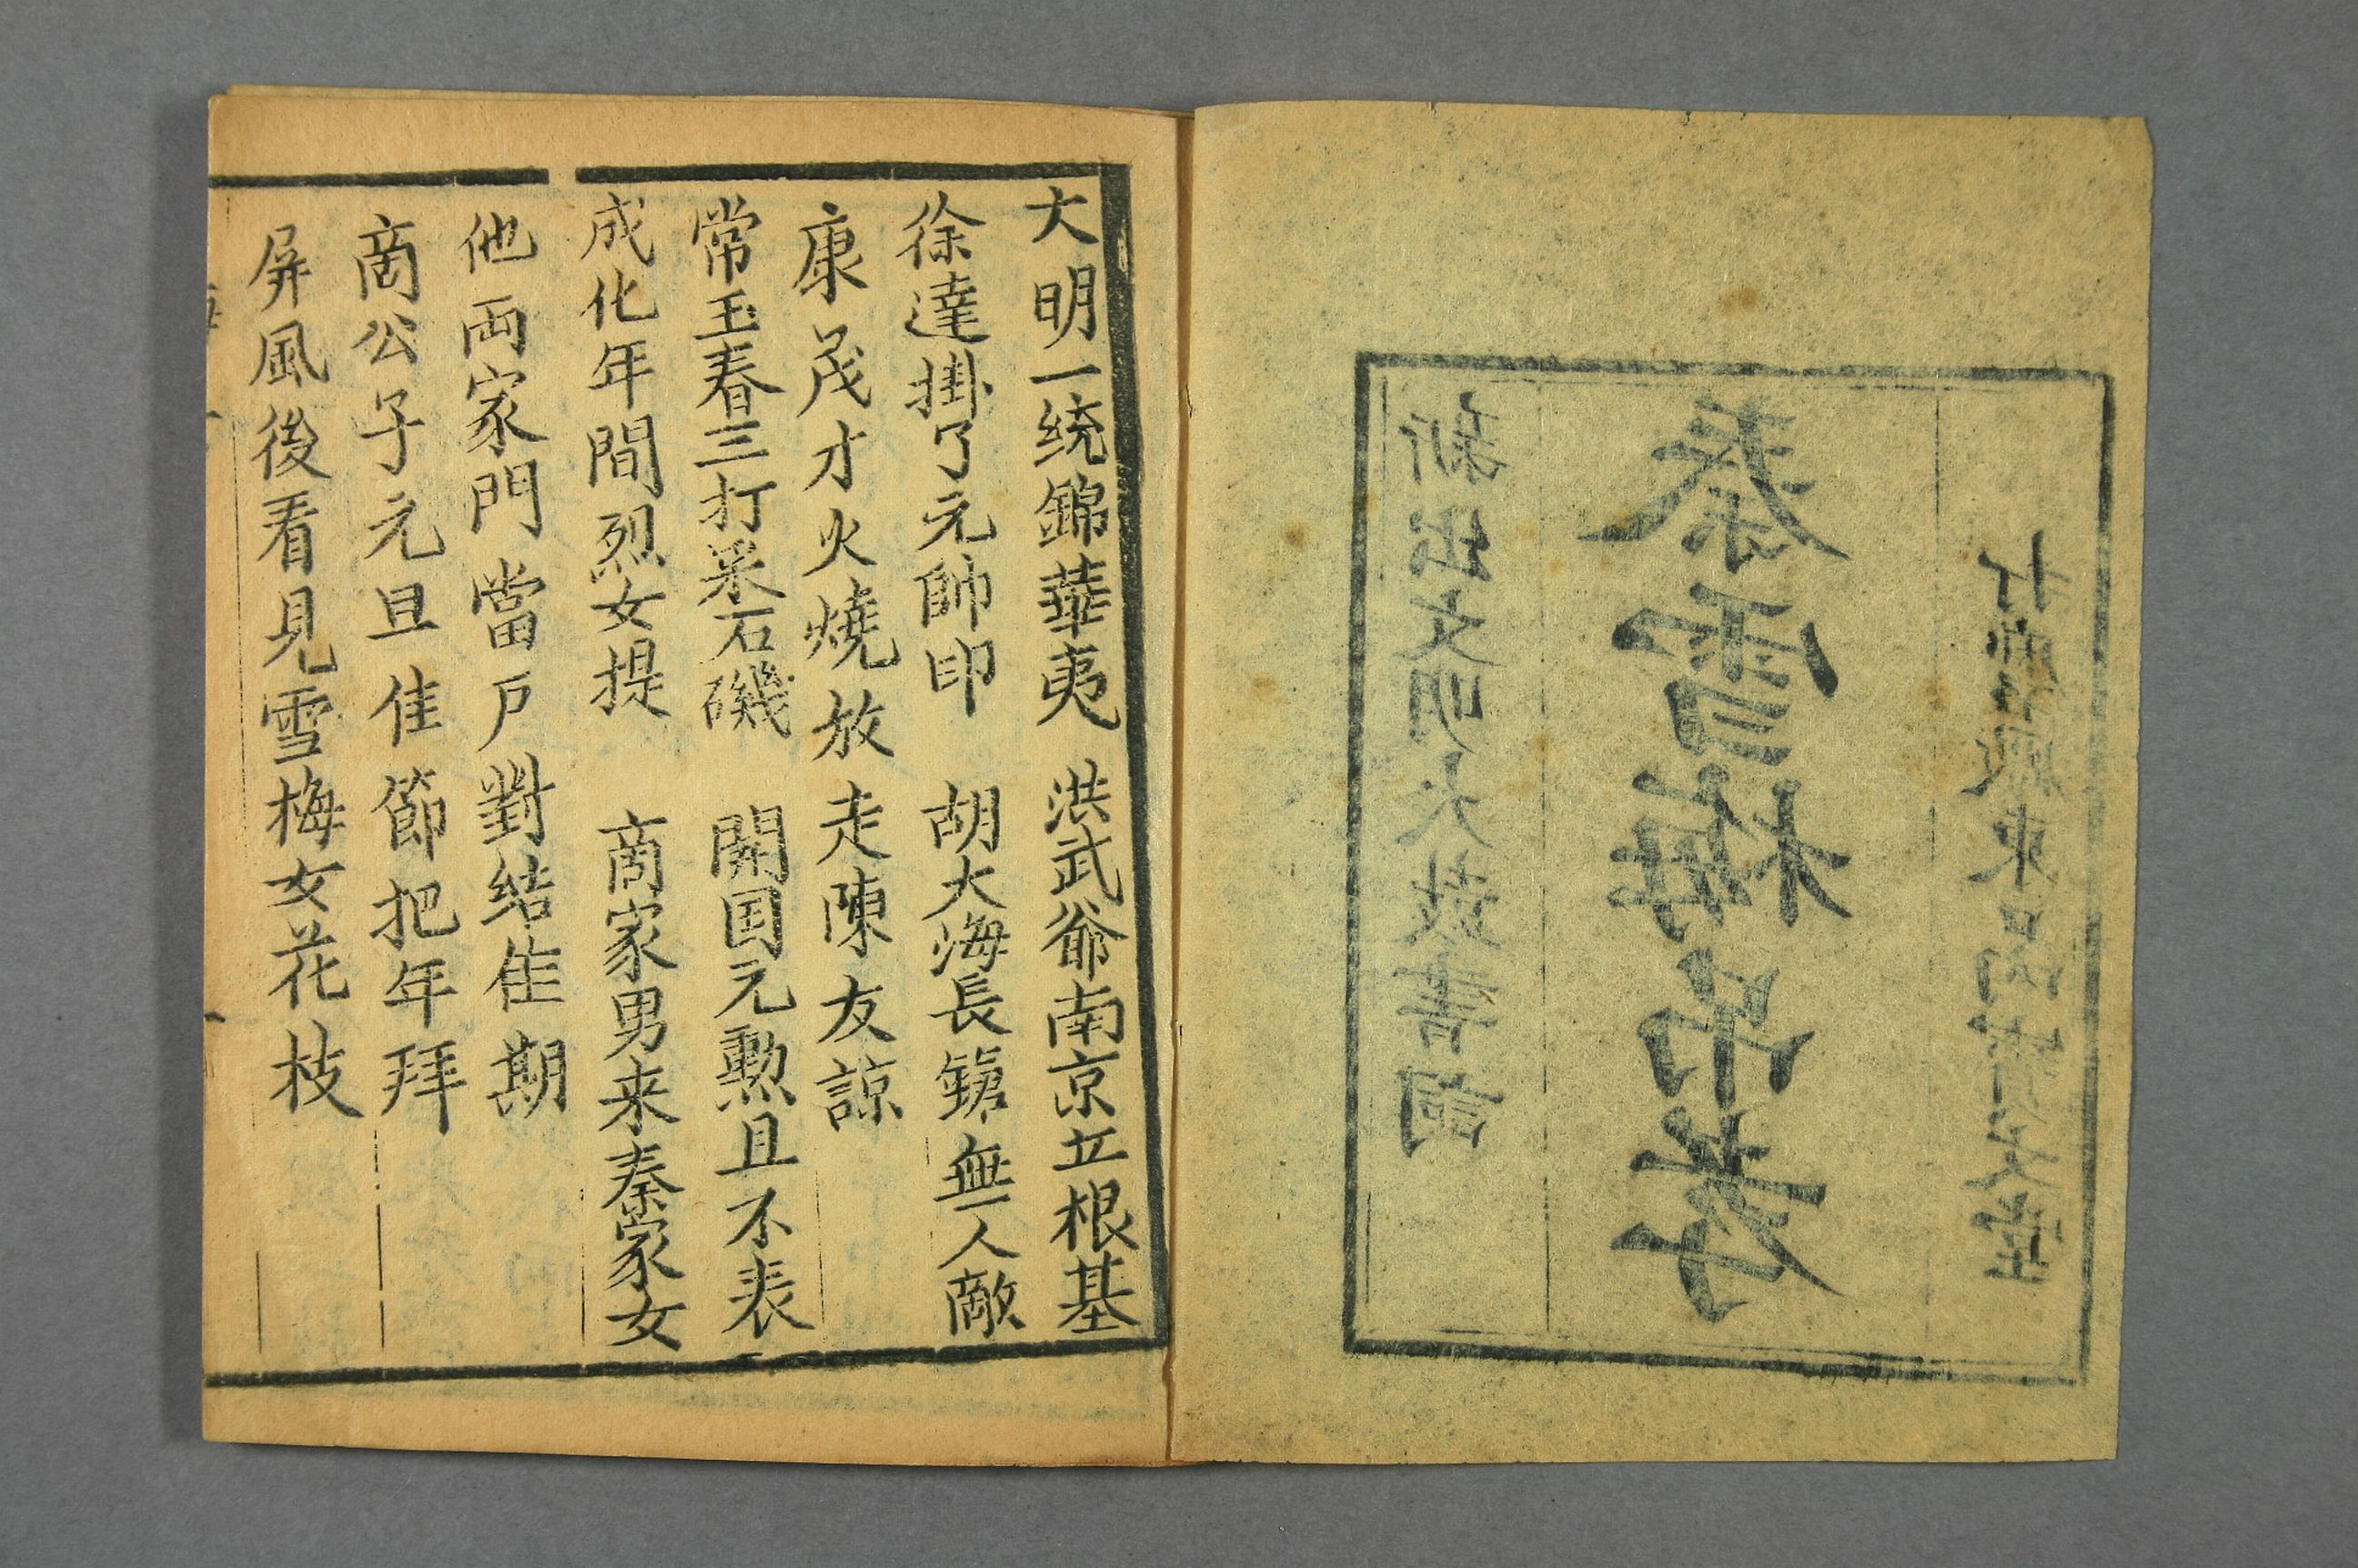 新出文明大鼓書詞
秦雪梅吊孝
大明一统錦華夷 洪武爺南京立根基
徐達掛了元帥印 胡大海長鎗無人敵
康茂才火燒放走陳友諒
常玉春三打采石磯 開国元勲且不表
成化年間烈女提 商家男来秦家女
他両家門當戸對结佳期
商公子元旦佳節把年拜
屏風後看見雪梅女花枝